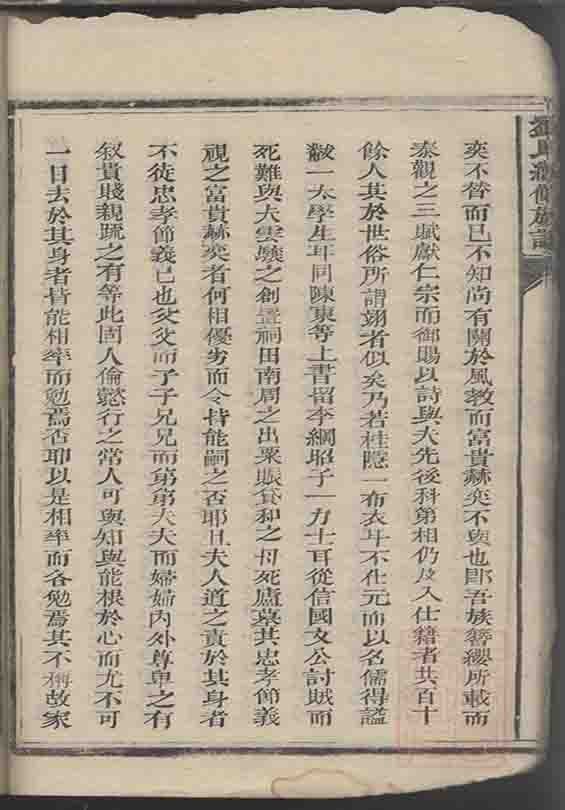 奕不替而已不知尚有關於風教而富貴赫奕不與也郎吾族簪纓所載而
泰觀之三賦獻仁宗而御賜以詩與夫先後科第相仍及入仕籍者共百十
餘人其於世俗所謂翊者似矣乃若桂隱一布衣耳不仕元而以名儒得謚
黻一太學生耳同陳東等上書留李綱昭子一力士耳從信國文公討賊而
死難與夫雲騤之創置祠田南周之出粟賑貧和之母死廬墓其忠孝節義
視之富貴赫奕者何相優劣而令皆能嗣之否耶且夫人道之責於其身者
不徒忠孝節義已也父父而子子兄兄而弟弟夫夫而婦婦內外尊卑之有
敘貴賤親疏之有等此固人倫懿行之常人可與知與能根於心而尤不可
一日去於其身者皆能相率而勉焉否耶以是相率而各勉焉其不稱故家
氏續修族譜